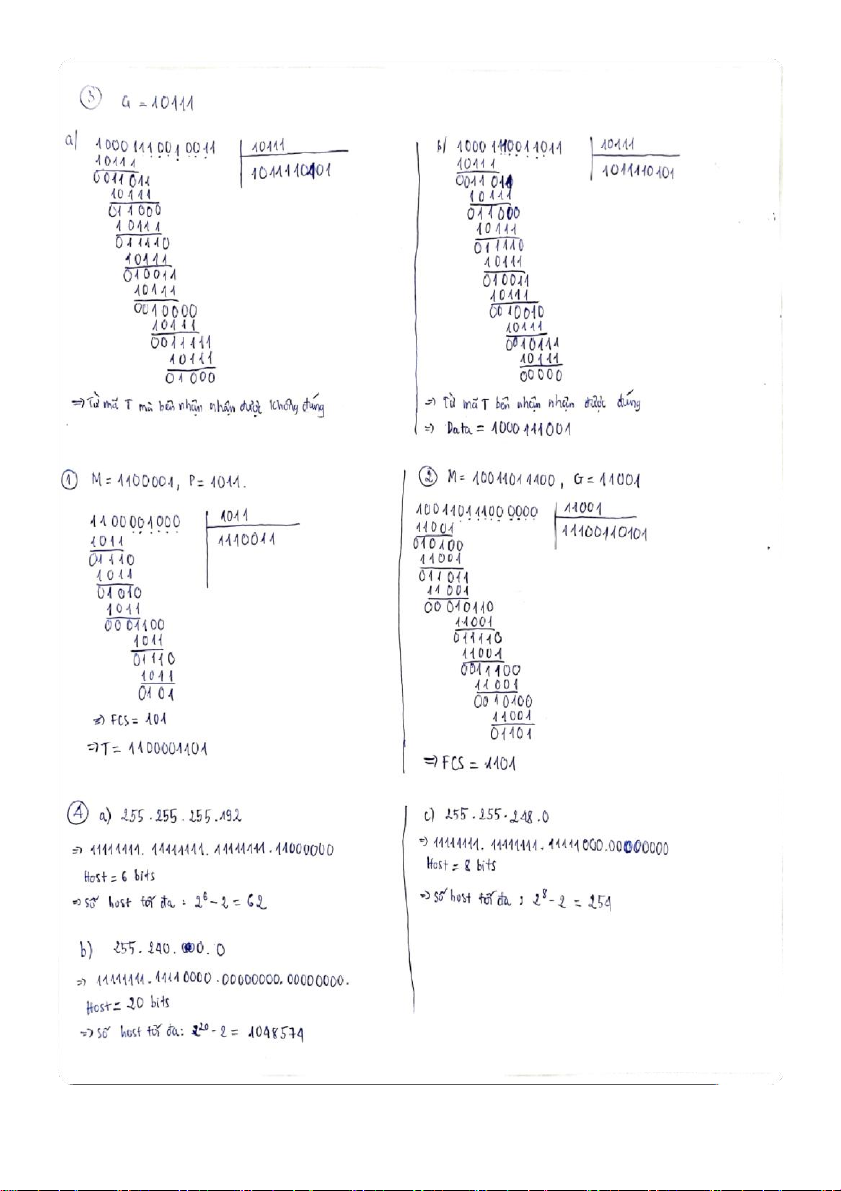 ③ G = 10111
a/ 10001110010011 | 10111
10111 | 10111110101
0011011
10111
011000
10111
011110
10111
010011
10111
0010000
10111
0011111
10111
01000
=> Từ mã T mà bên nhận nhận được không đúng
b/ 10001110011011 | 10111
10111 | 1011110101
0011011
10111
011000
10111
011110
10111
010011
10111
0010010
10111
0010111
10111
00000
=> Từ mã T bên nhận nhận được đúng
=> Data = 1000111001
① M = 1100001, P = 1011.
1100001000 | 1011
1011 | 1110011
01110
1011
01010
1011
0001100
1011
01110
1011
0101
=> FCS = 101
=> T = 1100001101
② M = 10011011100, G = 11001
100110111000000 | 11001
11001 | 11100110101
010100
11001
011011
11001
00010110
11001
011110
11001
0011100
11001
0010100
11001
01101
=> FCS = 1101
④ a) 255.255.255.192
=> 11111111.11111111.11111111.11000000
Host = 6 bits
=> số host tối đa : 2⁶-2 = 62
b) 255.240.000.0
=> 11111111.11110000.00000000.00000000.
Host = 20 bits
=> số host tối đa: 2²⁰-2 = 1048574
c) 255.255.248.0
=> 11111111.11111111.11111000.00000000
Host = 8 bits
=> số host tối đa : 2⁸-2 = 254